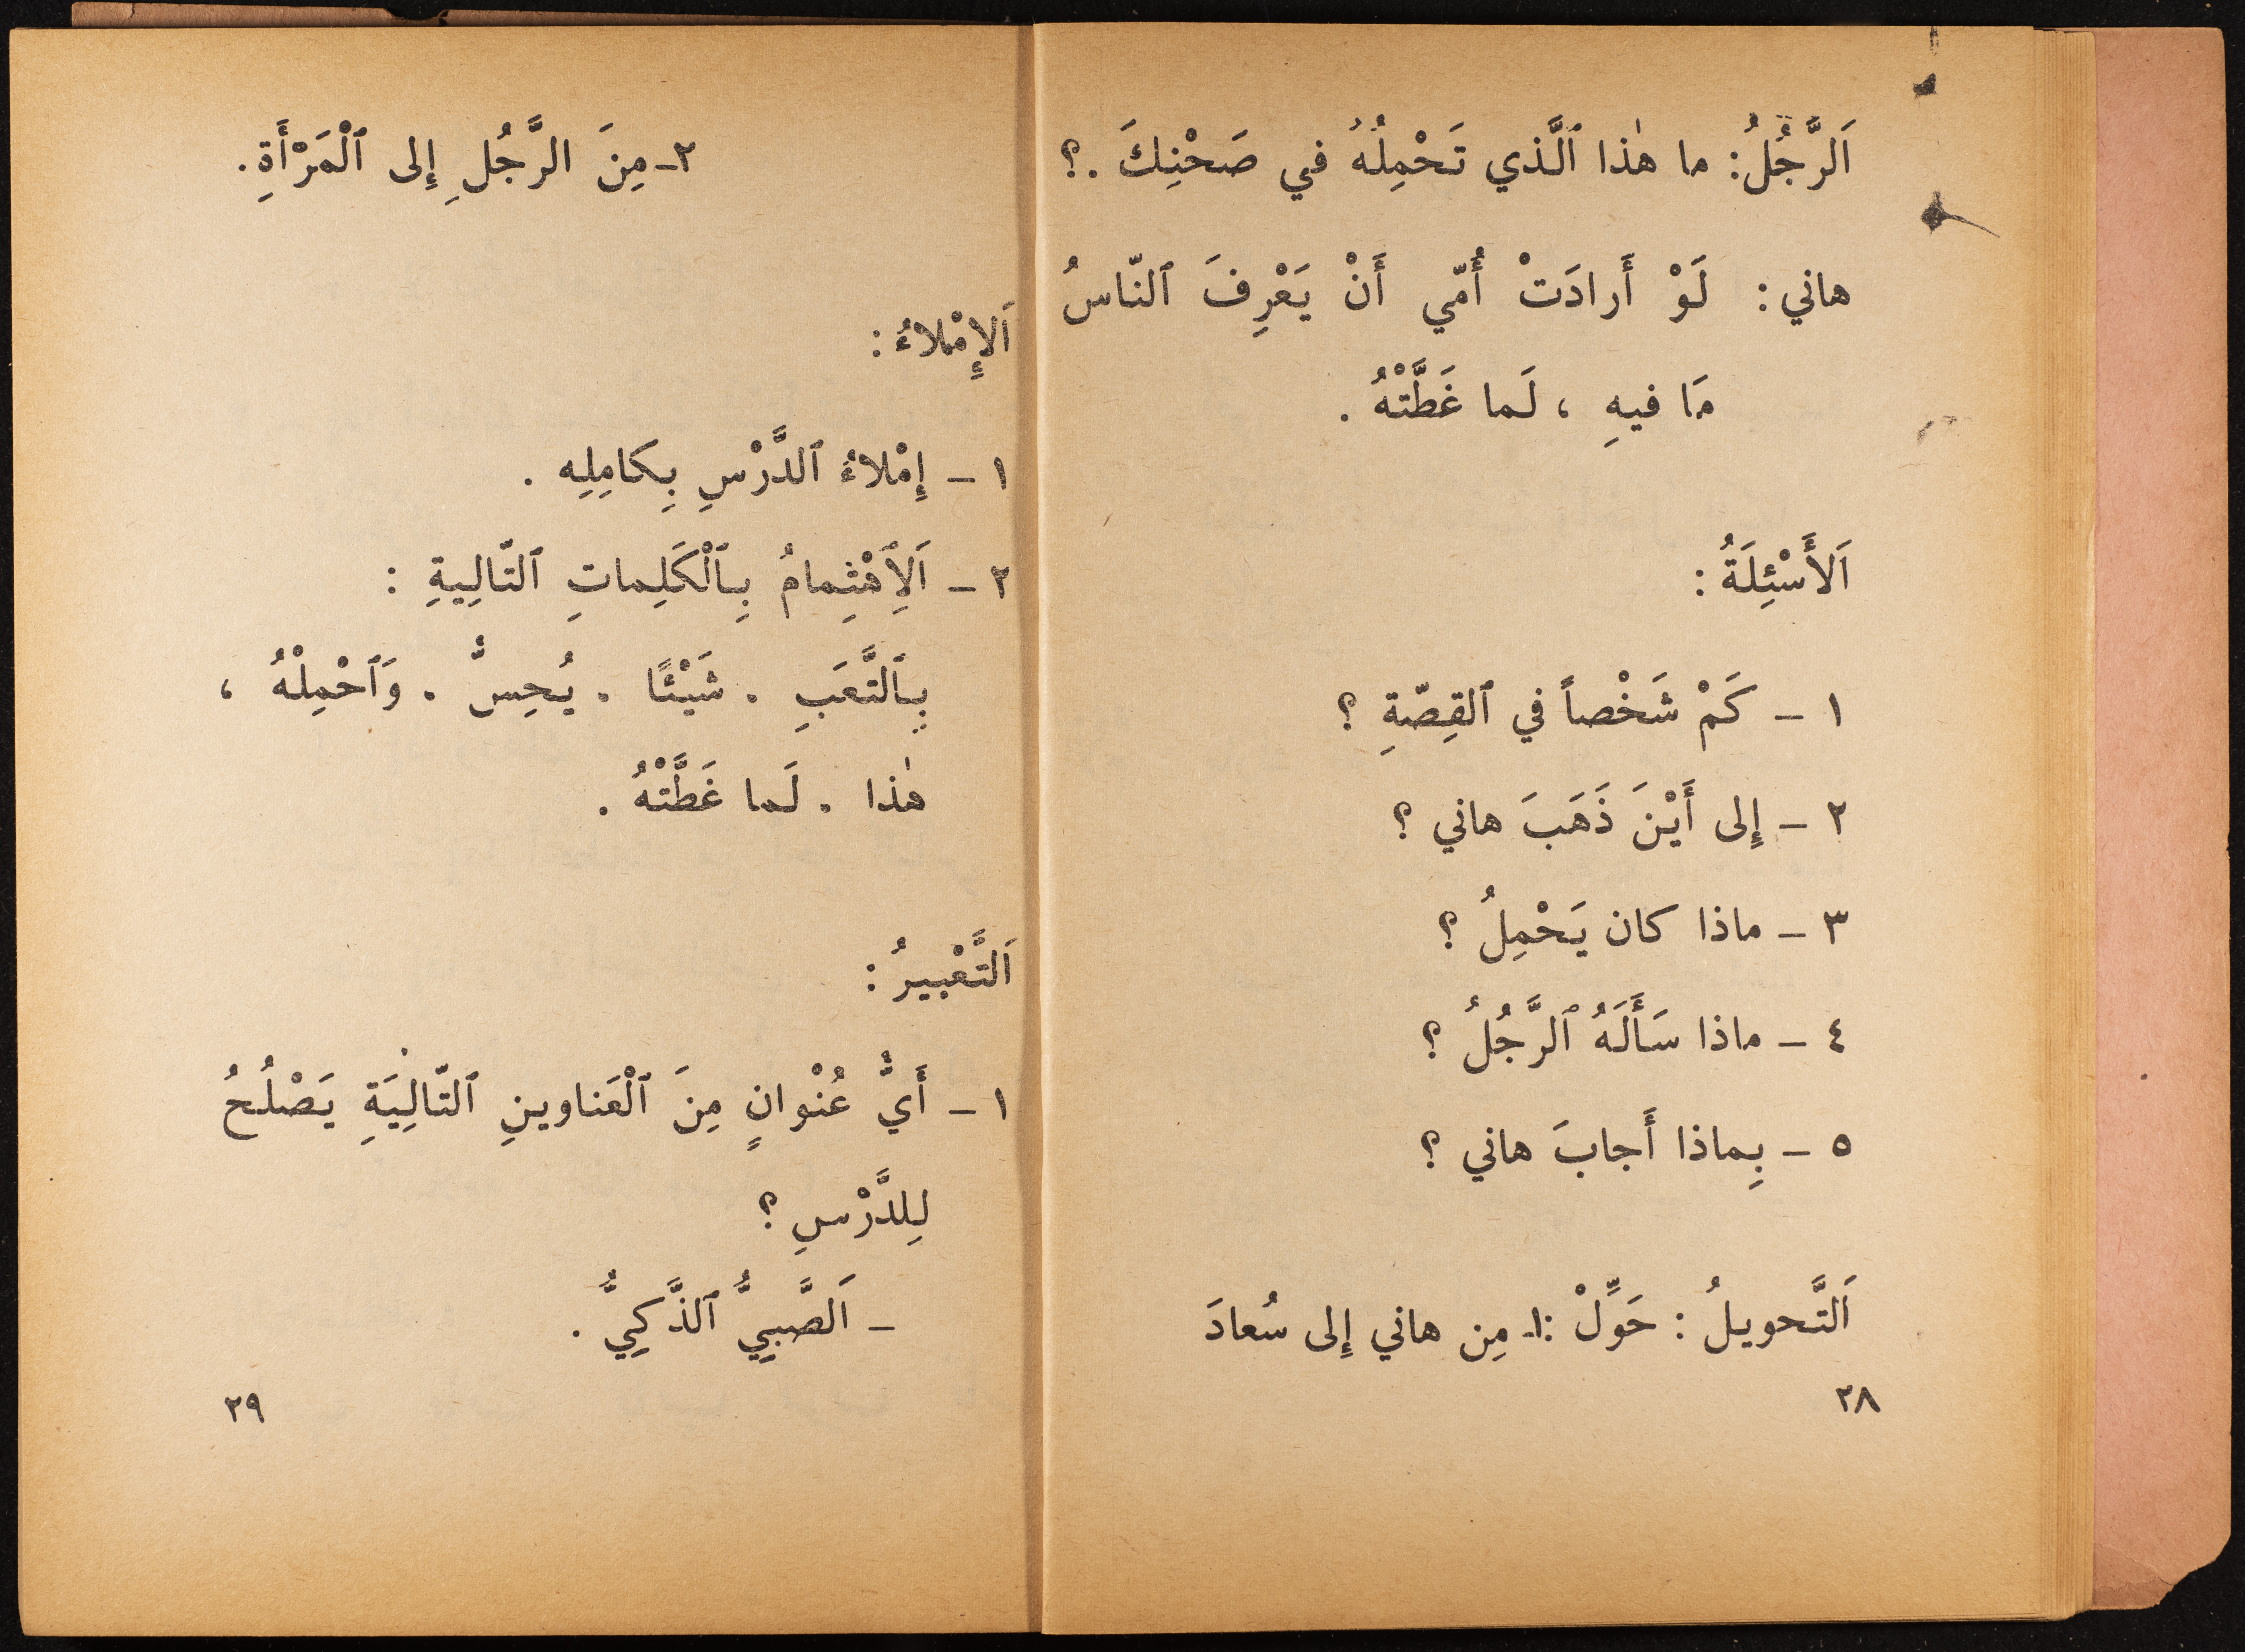 اَلرَّجُلُ: ما هٰذا ٱلَّذي تَحْمِلُهُ في صَحْنِكَ .؟
هاني : لَوْ أَرادَتْ أُمّي أَنْ يَعْرِفَ ٱلنّاسُ
مَا فيهِ ، لَما غَطَّتْهُ .
اَلأَسْئِلَةُ :
١ – كَمْ شَخْصاً في ٱلقِصّةِ ؟
٢ – إِلى أَيْنَ ذَهَبَ هاني ؟
٣ – ماذا كان يَحْمِلُ ؟
٤ – ماذا سَأَلَهُ ٱلرَّجُلُ ؟
٥ – بِماذا أَجابَ هاني ؟
اَلتَّحويلُ : حَوِّلْ :١ـ مِن هاني إِلى سُعادَ
٢٨
٢ـ مِنَ الرَّجُلِ إِلى ٱلْمَرْأَةِ .
اَلإِمْلاءُ :
١ – إِمْلاءُ ٱلدَّرْسِ بِكامِلِهِ .
٢ – اَلِٱهْتِمامُ بِٱلْكَلِماتِ ٱلتّالِيةِ :
بِٱلتَّعَبِ . شَيْئًا . يُحِسُّ . وَٱحْمِلْهُ ،
هٰذا . لَما غَطَّتْهُ .
اَلتَّعْبيرُ :
١ – أَيُّ عُنْوانٍ مِنَ ٱلْعَناوينِ ٱلتّالِيَةِ يَصْلُحُ
لِلدَّرْسِ ؟
– اَلصَّبِيُّ ٱلذَّكِيُّ .
٢٩